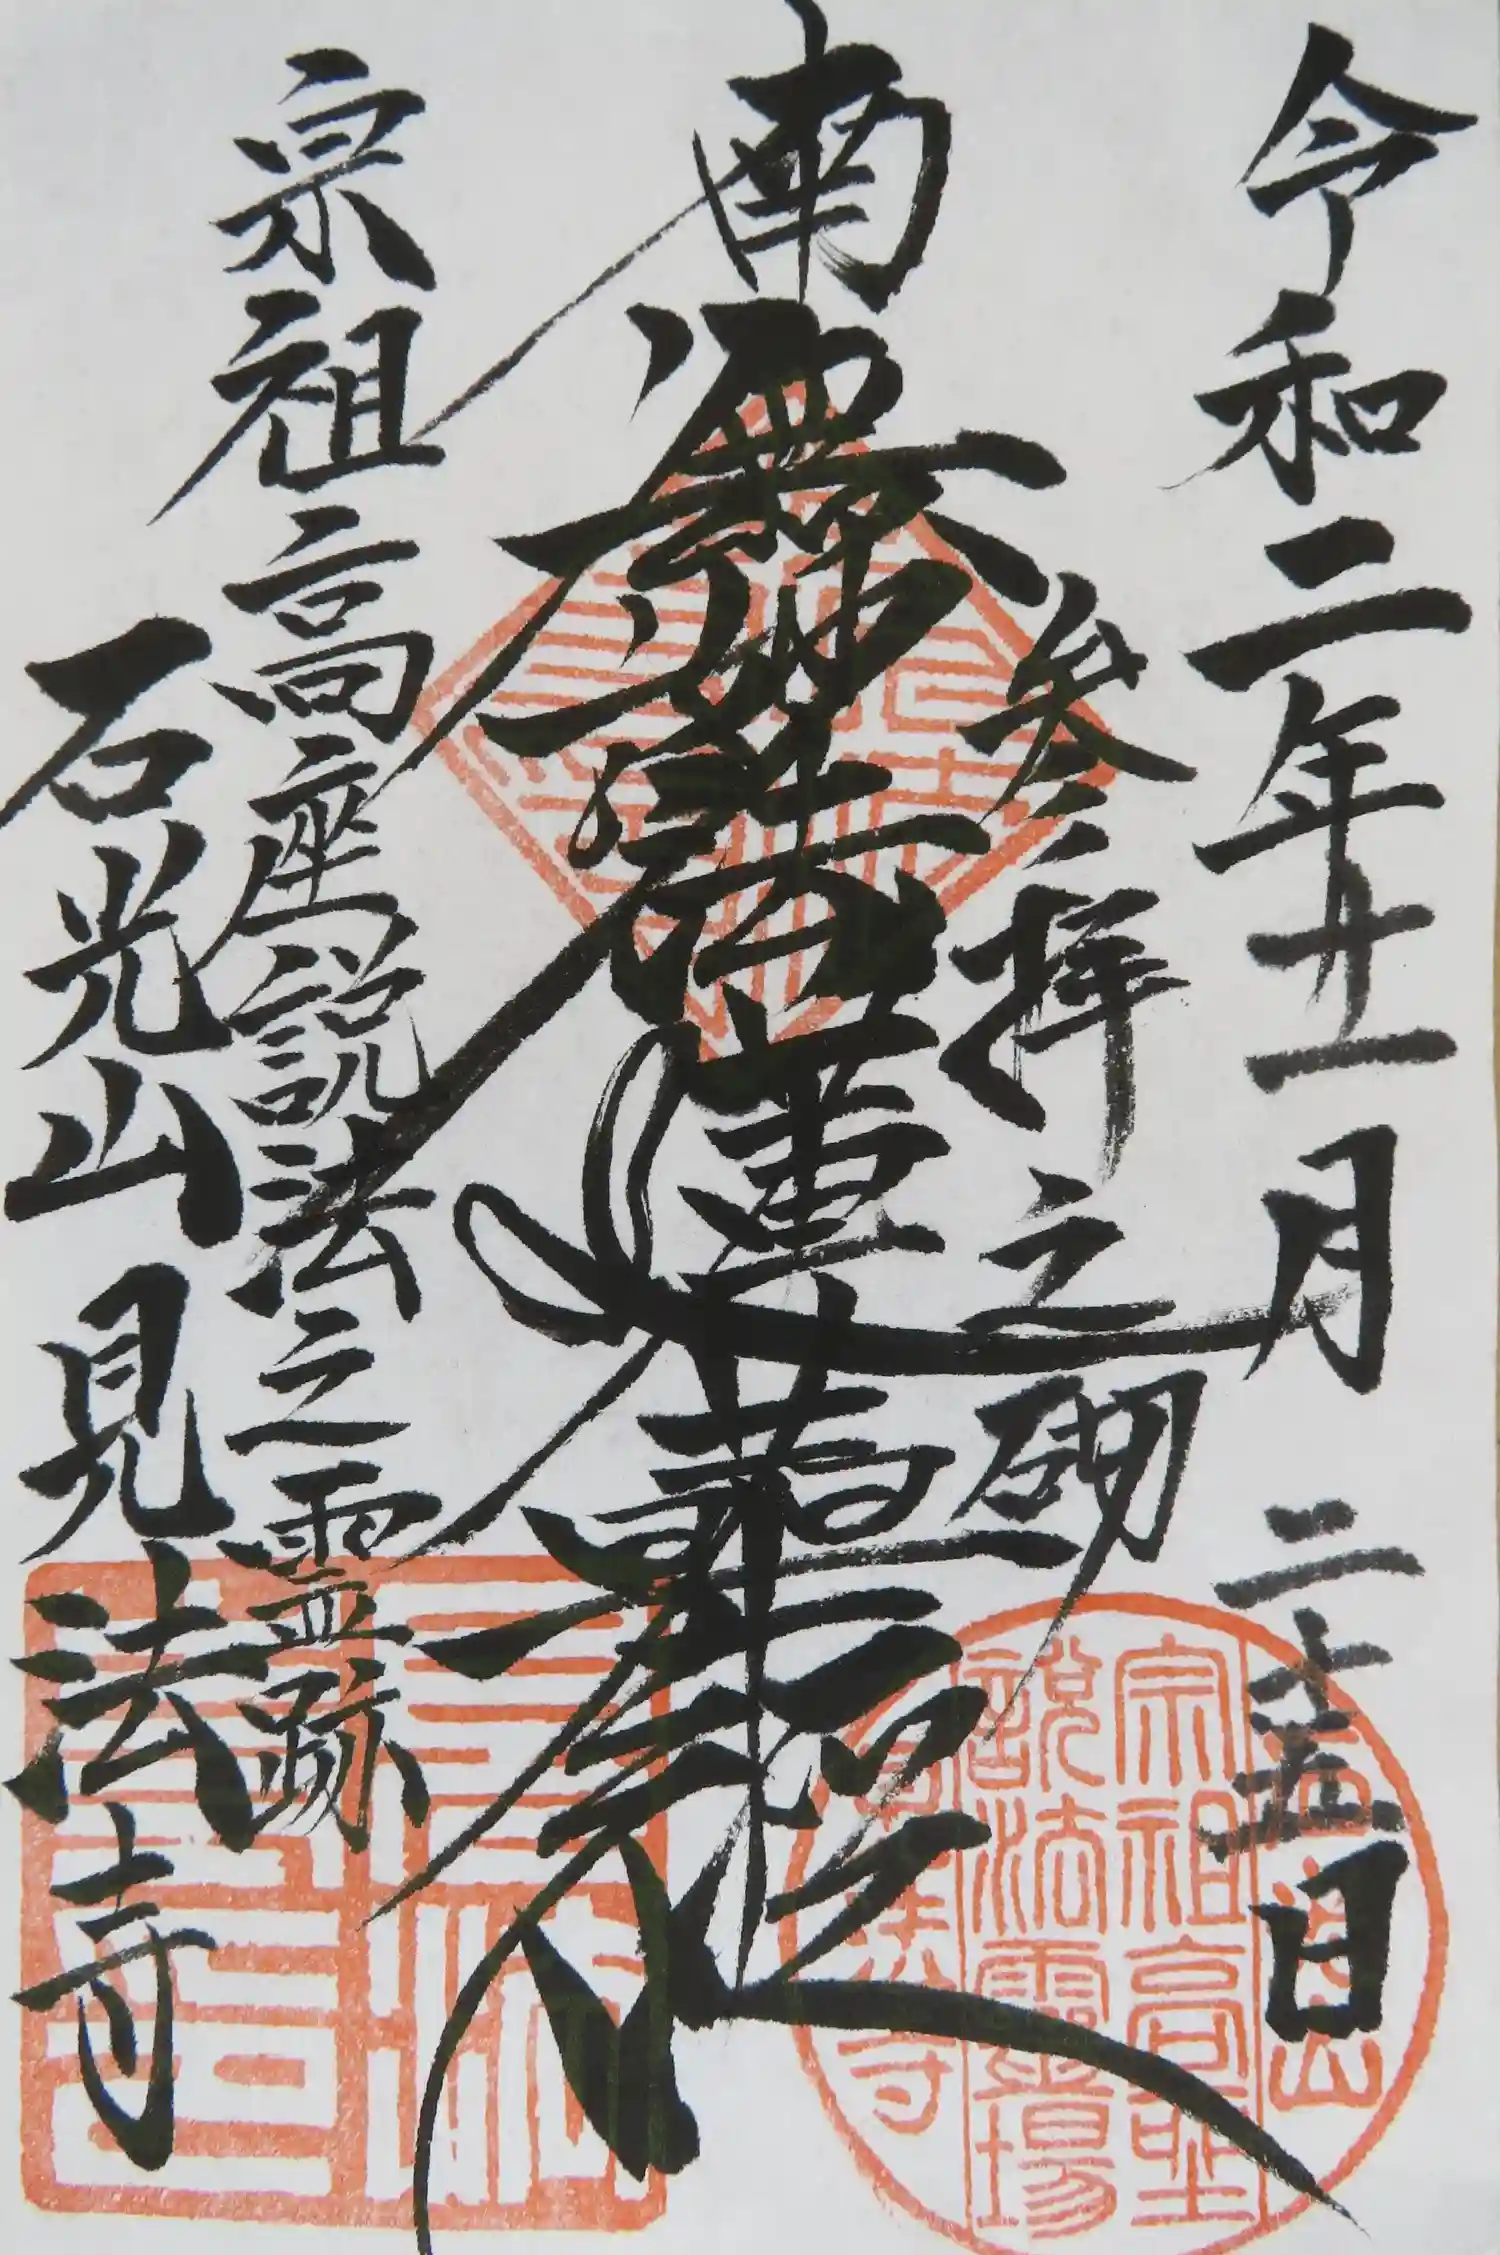 令和二年十一月二十五日
参拝之砌
南無妙法蓮華経
宗祖高座説法之霊跡
石光山見法寺
宗祖高座
説法霊場